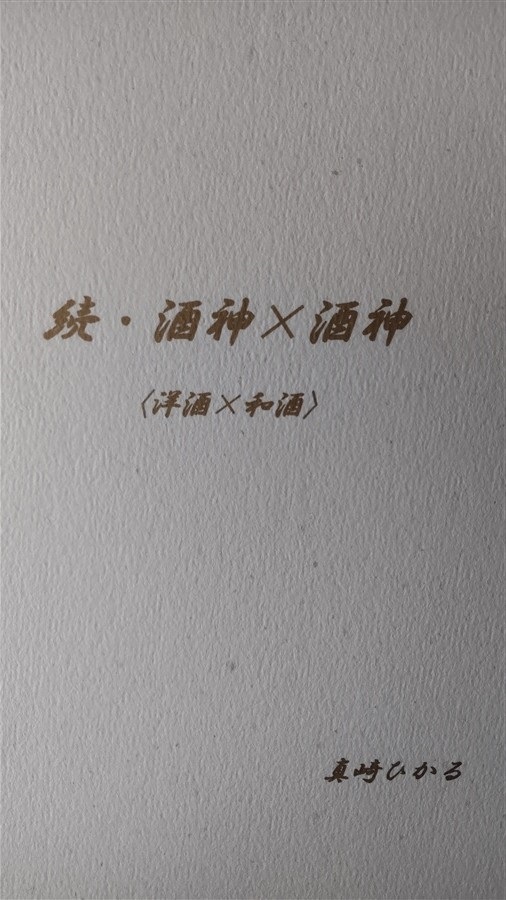 続・酒神×酒神
〈洋酒×和酒〉
真崎ひかる